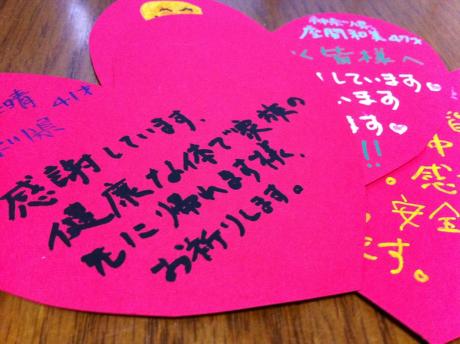 晴 41才
感謝しています、
健康な体で家族の
元に帰れます様、
お祈りします。
神奈川県
座間和美 47才
皆様へ
しています
います
す
!!
中
感
安全
す。